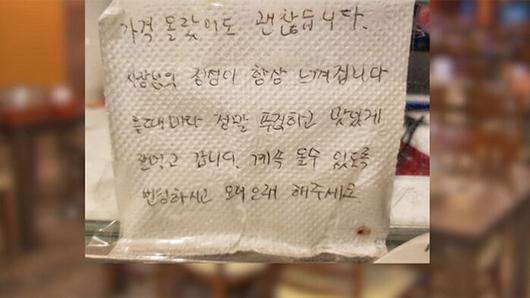 가격 올랐어도 괜찮습니다.
사장님의 친절이 항상 느껴집니다
올때마다 정말 푸짐하고 맛있게
잘먹고 갑니다. 계속 올수 있도록
번창하시고 오래오래 해주세요